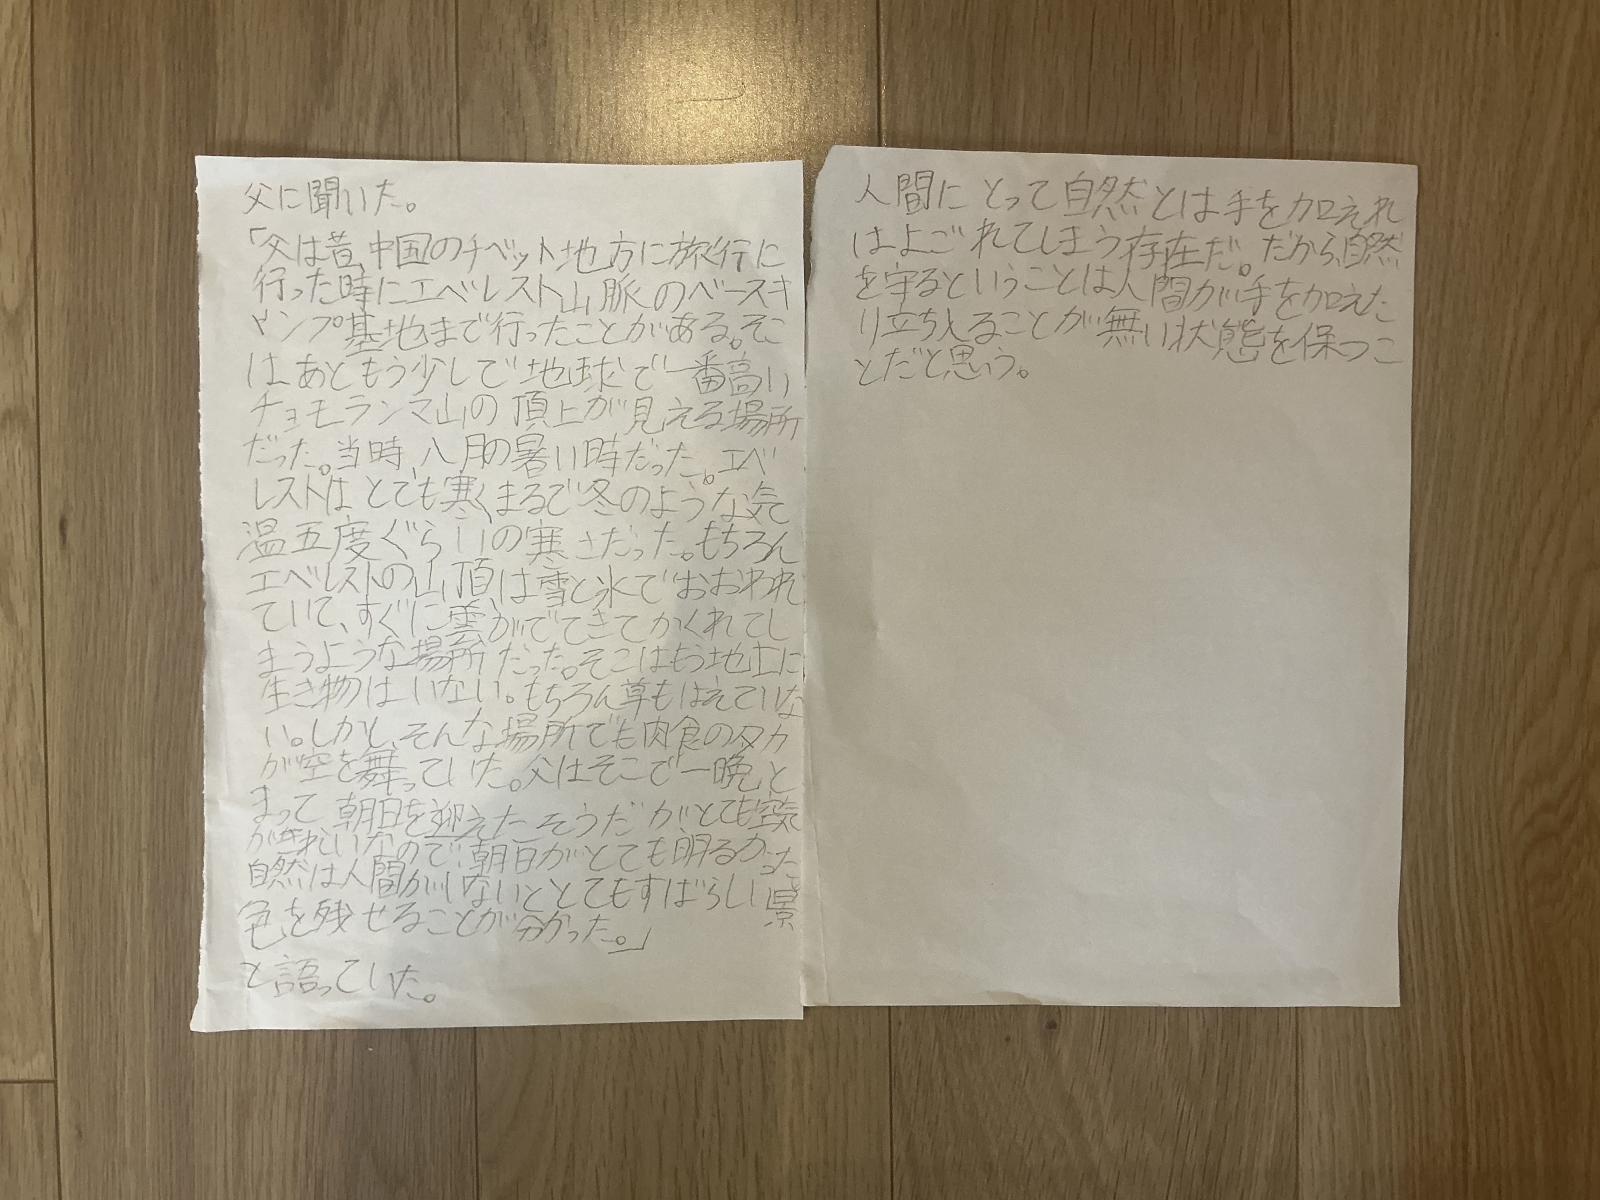 父に聞いた。
「父は昔、中国のチベット地方に旅行に
行った時にエベレスト山脈のベースキ
ャンプ基地まで行ったことがある。そこ
は、あともう少しで地球で一番高い
チョモランマ山の頂上が見える場所
だった。当時、八月の暑い時だった。エベ
レストはとても寒くまるで冬のような気
温五度ぐらいの寒さだった。もちろん
エベレストの山頂は雪と氷でおおわれ
ていて、すぐに雲がでてきてかくれてし
まうような場所だった。そこはもう地上に
生き物はいない。もちろん草もはえていな
い。しかし、そんな場所でも肉食のタカ
が空を舞っていた。父はそこで一晩と
まって朝日を迎えたそうだがとても空気
がきれいなので朝日がとても明るかった。
自然は人間がいないととてもすばらしい景
色を残せることが分かった。」
と語っていた。
人間にとって自然とは手を加えれ
はよごれてしまう存在だ。だから、自然
を守るということは人間が手を加えた
り立ち入ることが無い状態を保つこ
とだと思う。